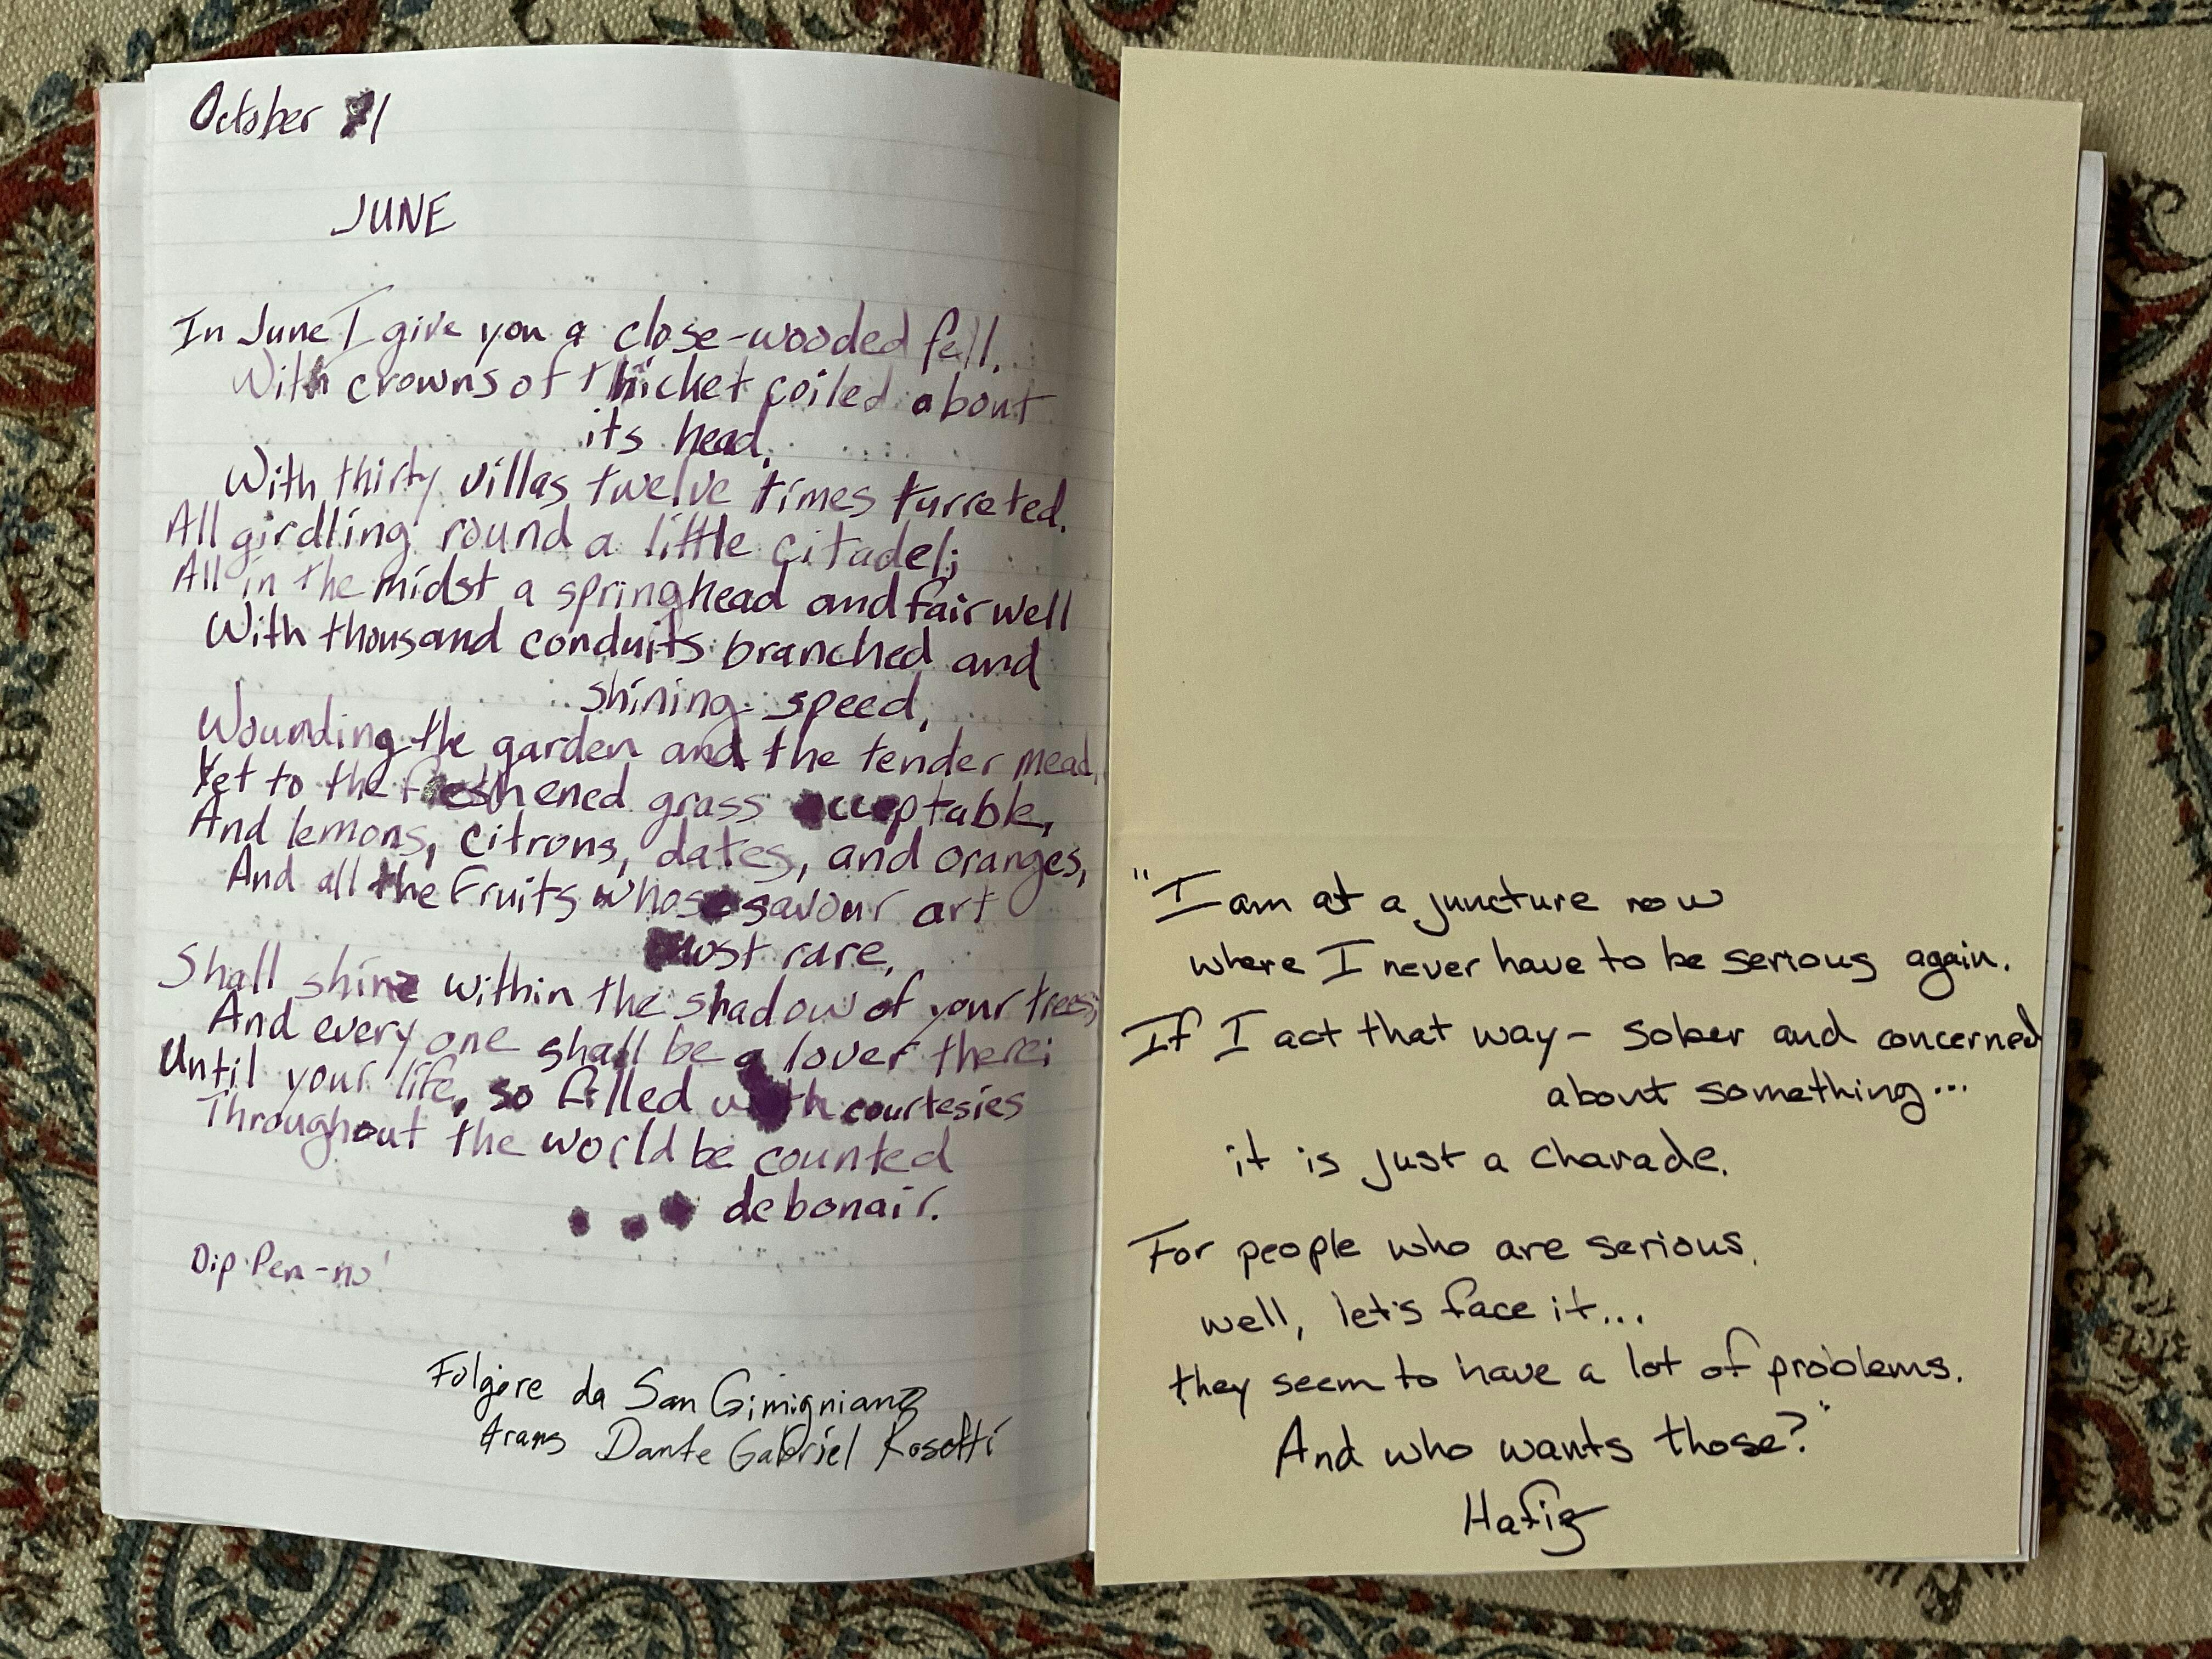 October 1
JUNE
In June I give you a close-wooded fell,
With crowns of thicket coiled about
its head,
With thirty villas twelve times turreted.
All girdling round a little citadel;
All in the midst a springhead and fair well
With thousand conduits branched and
shining speed,
Wounding the garden and the tender mead,
Yet to the freshened grass acceptable,
And lemons, citrons, dates, and oranges,
And all the Fruits whose savour art
most rare,
Shall shine within the shadow of your trees;
And every one shall be a lover there;
Until your life, so filled with courtesies
Throughout the world be counted
debonair.
Dip Pen-no!
Folgore da San Gimignano
trans Dante Gabriel Rosetti
"I am at a juncture now
where I never have to be serious again.
If I act that way- sober and concerned
about something...
it is just a charade.
For people who are serious,
well, let's face it...
they seem to have a lot of problems.
And who wants those?"
Hafiz